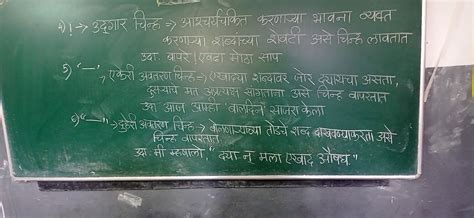 ४) ! → उद्गार चिन्ह → आश्चर्यचकित करणाऱ्या भावना व्यक्त
करणाऱ्या शब्दाच्या शेवटी असे चिन्ह लावतात
उदा. बापरे ! एवढा मोठा साप
5) '—' एकेरी अवतरण चिन्ह → एखाद्या शब्दावर जोर द्यायचा असता,
दुसऱ्याचे मत अप्रत्यक्ष सांगताना असे चिन्ह वापरतात
उदा आज आम्ही 'बालदिन' साजरा केला
६) "—" → दुहेरी अवतरण चिन्ह → बोलणाऱ्याच्या तोंडचे शब्द दाखवण्याकरता असे
चिन्ह वापरतात
उदा. मी म्हणालो, "द्या न मला एखादं औषध"